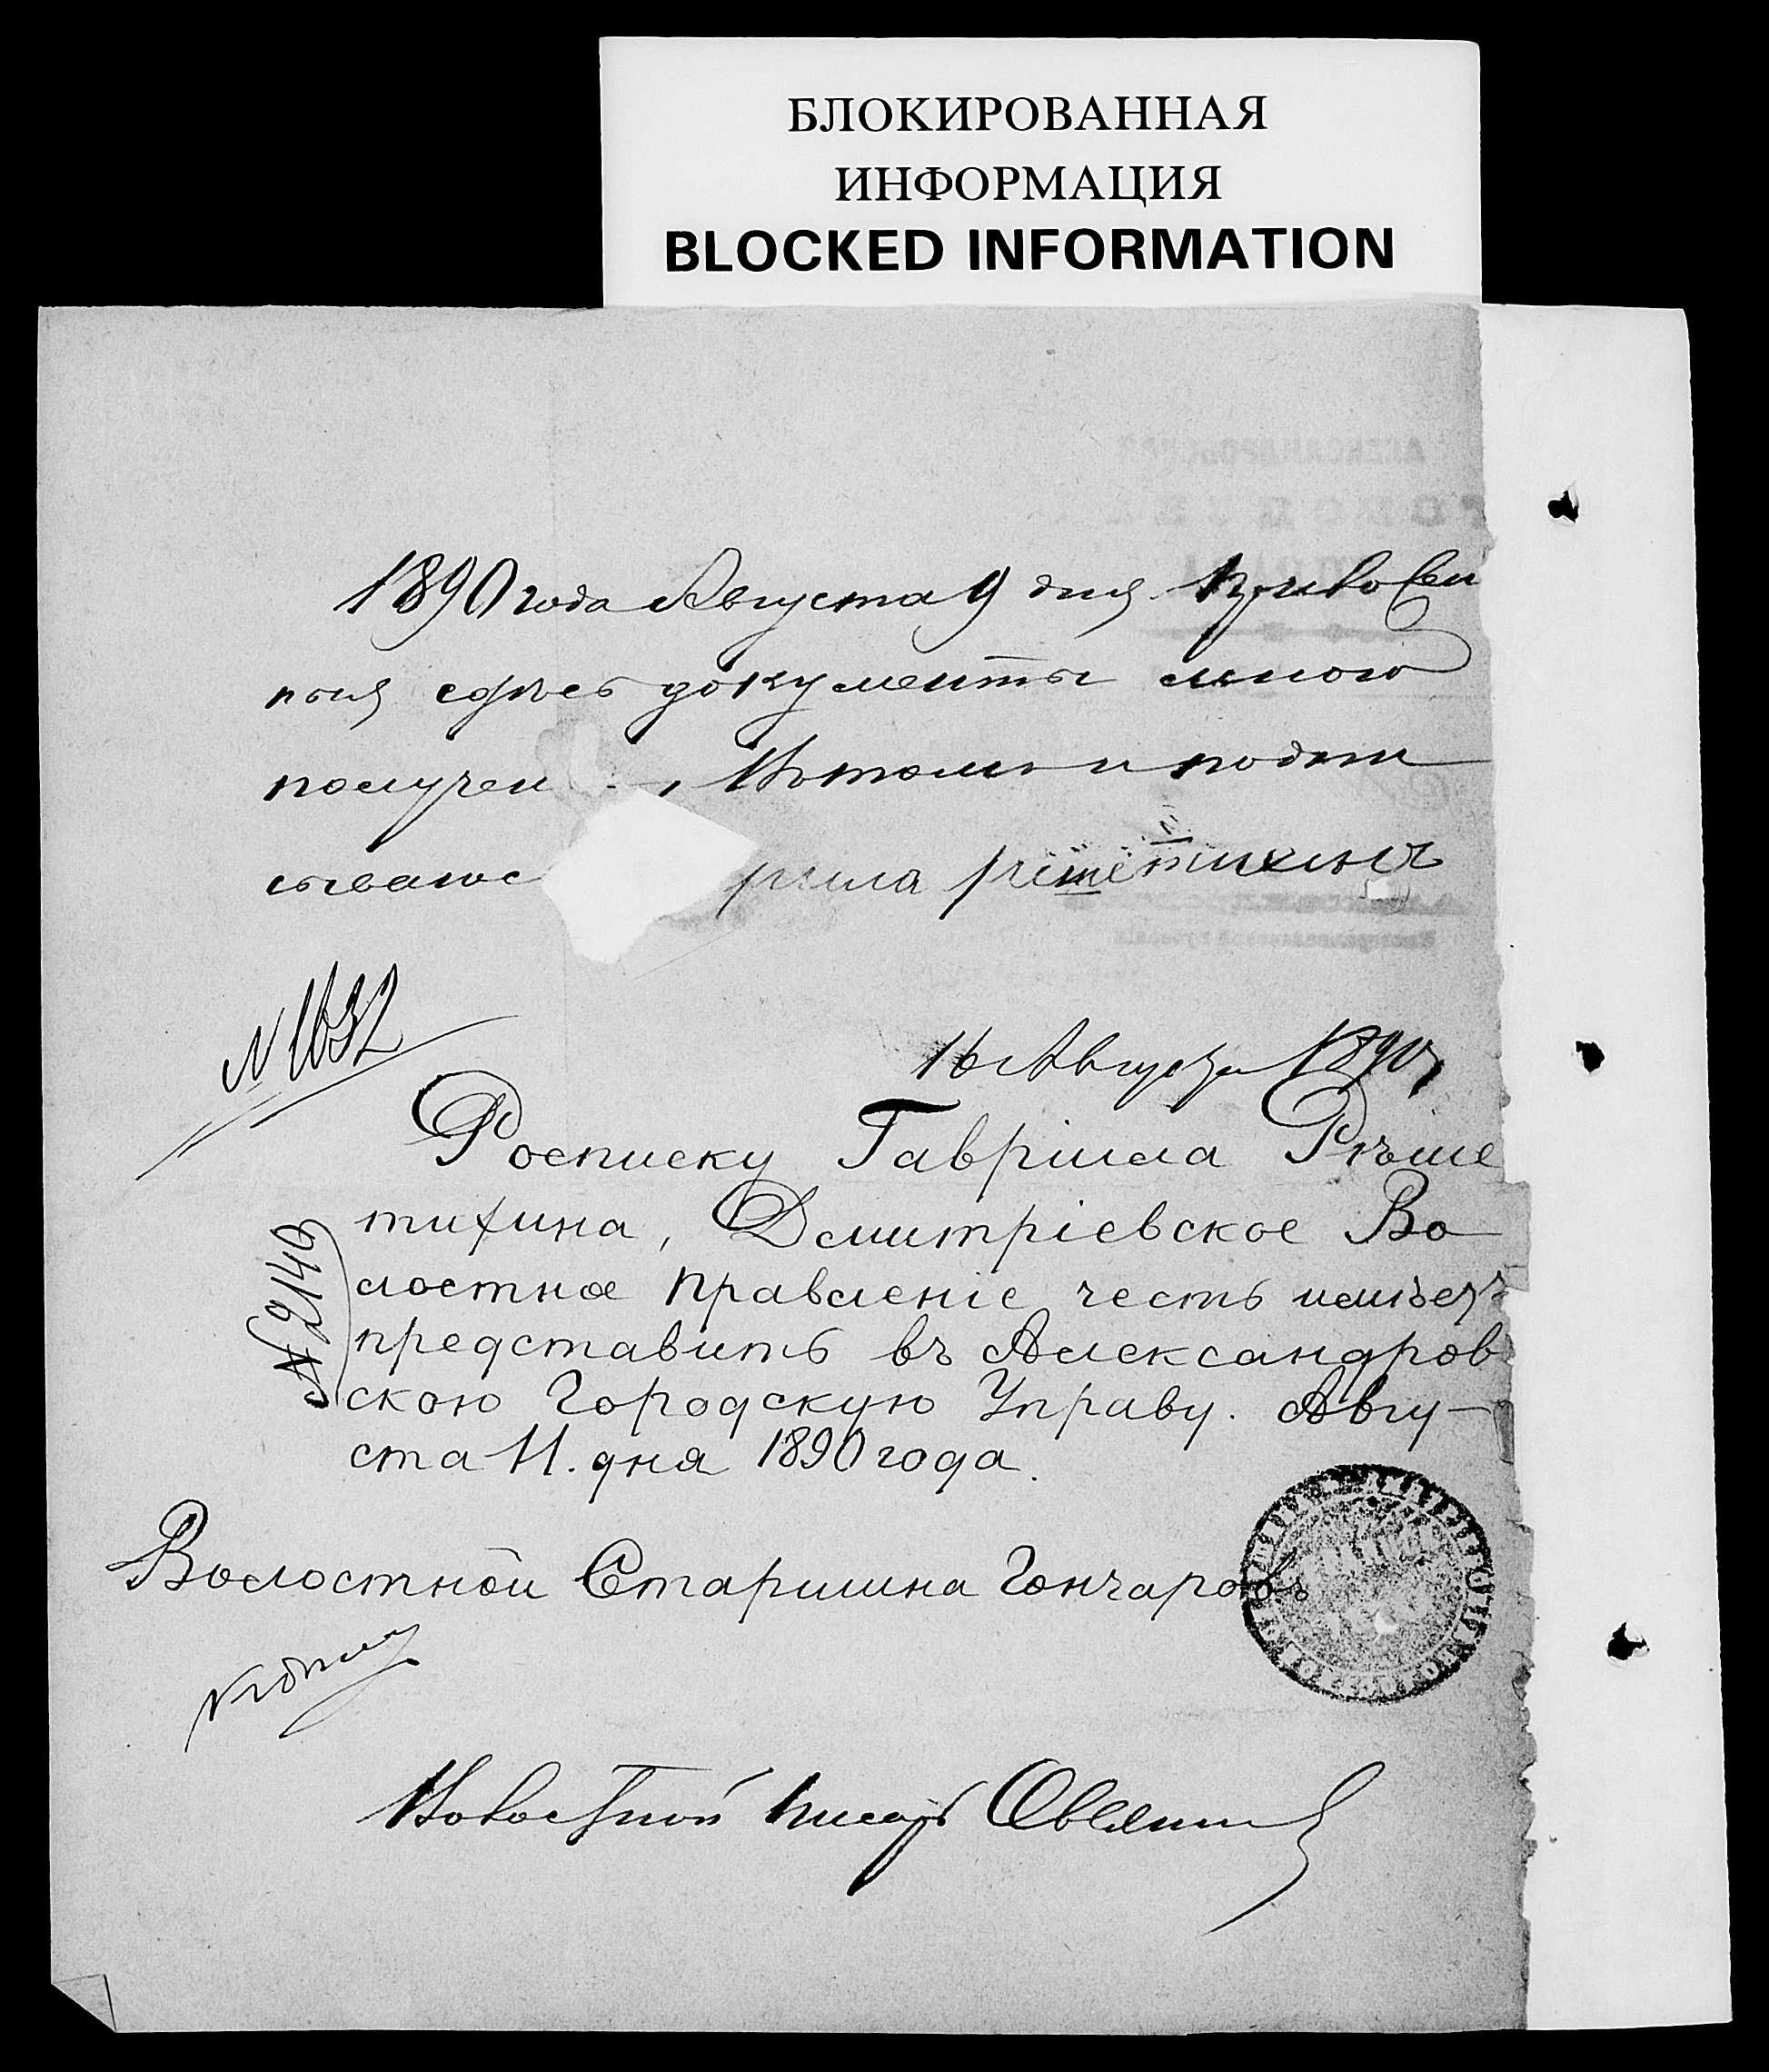 БЛОКИРОВАННАЯ
ИНФОРМАЦИЯ
BLOCKED INFORMATION
1890 года Августа 9 дня
документы мною
получен , Вътомъ и подпи
сываюс рила решетихинъ
N 1632
16 Августа 1890
Росписку Гавріила Рѣше
тихина, Дмитріевское Во
лостное Правленіе честь имѣетъ
представить въ Александров
скою Городскую Управу. Авгу-
ста 11. дня 1890 года.
№ 2140
Волостной Старшина Гончаровъ
Волостной Писарь